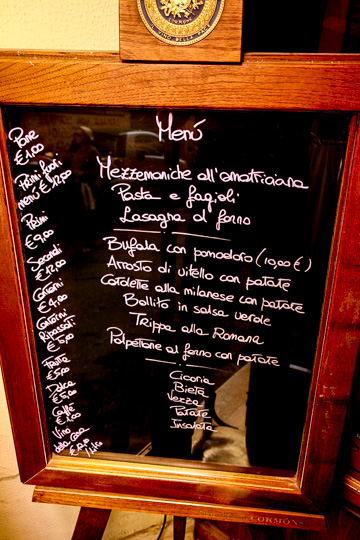 CORMÒNS
VINO DELLA PACE
Menú
Pane
€1,00
Primi fuori
menú €12,00
Primi
€9,00
Secondi
€12,00
Contorni
€4,00
Contorni
Ripassati
€5,00
Frutta
€5,00
Dolce
€5,00
Caffè
Vino
della casa
/Litro
Mezzemaniche all'amatriciana
Pasta e fagioli
Lasagna al forno
Bufala con pomodoro (10,00 €)
Arrosto di vitello con patate
Cotolette alla milanese con patate
Bollito in salsa verde
Trippa alla Romana
Polpettone al forno con patate
Cicoria
Bieta
Verza
Patate
Insalata
CORMÒNS